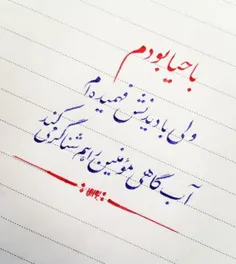 با حیا بودم
ولی با دیدنش فهمیده‌ام
آب گاهی مؤمنین را هم شناگر می کند